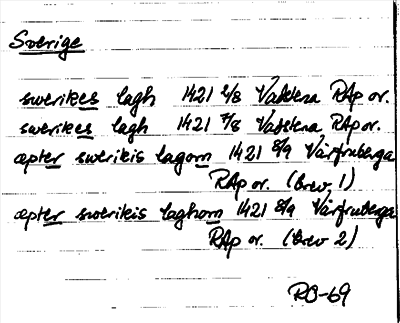 Sverige
swerikes lagh 1421 2/8 Vadstena RAp or.
swerikes lagh 1421 7/8 Vadstena RAp or.
æpter swerikis lagom 1421 8/9 Vårfruberga
RAp or. (brev 1)
æpter swerikis laghom 1421 8/9 Vårfruberga
RAp or. (brev 2)
RO-69